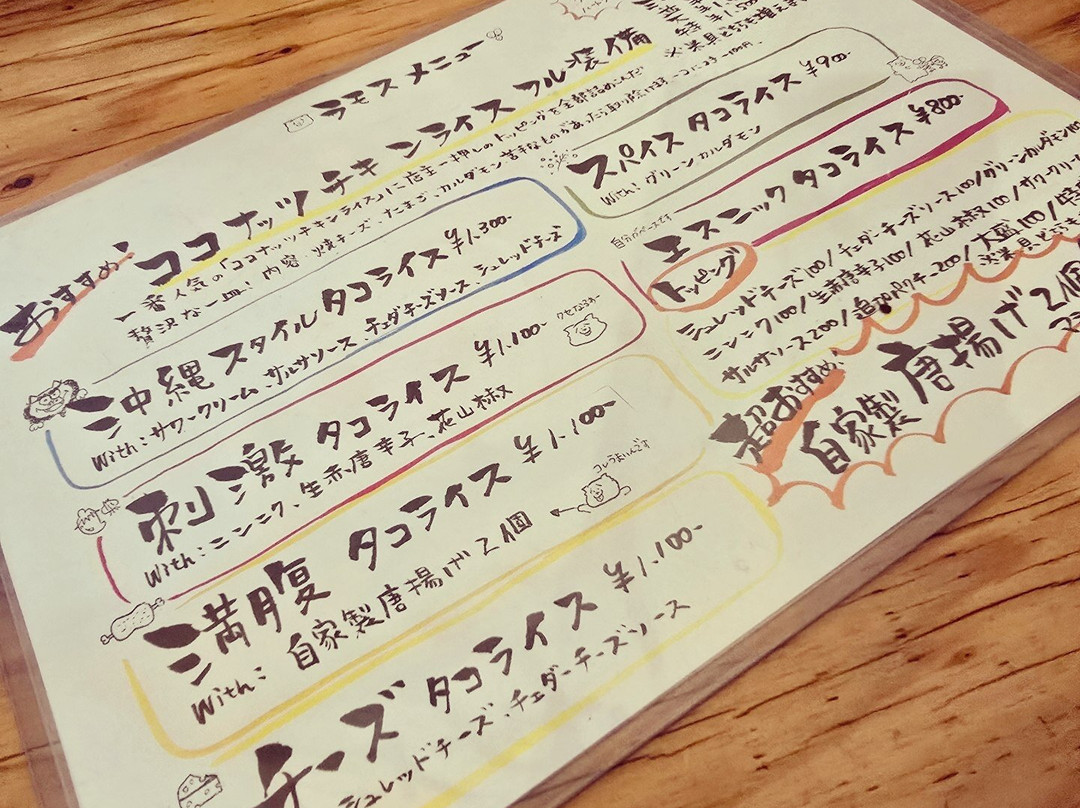 ラモスメニュー
おすすめ! ココナッツチキンライス フル装備
一番人気の「ココナッツチキンライス」に店主一押しのトッピングを全部詰めこんだ
贅沢な一皿!
沖縄スタイルタコライス ¥1,300-
With:サワークリーム、サルサソース、チェダチーズソース、シュレッドチーズ
刺激タコライス ¥1,100-
With:ニンニク、生赤唐辛子、花山椒
クセになるぅー
満腹タコライス ¥1,100-
With:自家製唐揚げ2個
コレうまいんです
チーズタコライス ¥1,100-
シュレッドチーズ、チェダーチーズソース
スパイスタコライス ¥900-
With:グリーンカルダモン
自分がベースです
エスニックタコライス ¥800-
トッピング
シュレッドチーズ100/チェダーチーズソース100/グリーンカルダモン100
ニンニク100/生赤唐辛子100/花山椒100/サワークリーム
サルサソース200/追加パクチー200/大盛100/特
超おすすめ!
自家製唐揚げ2個